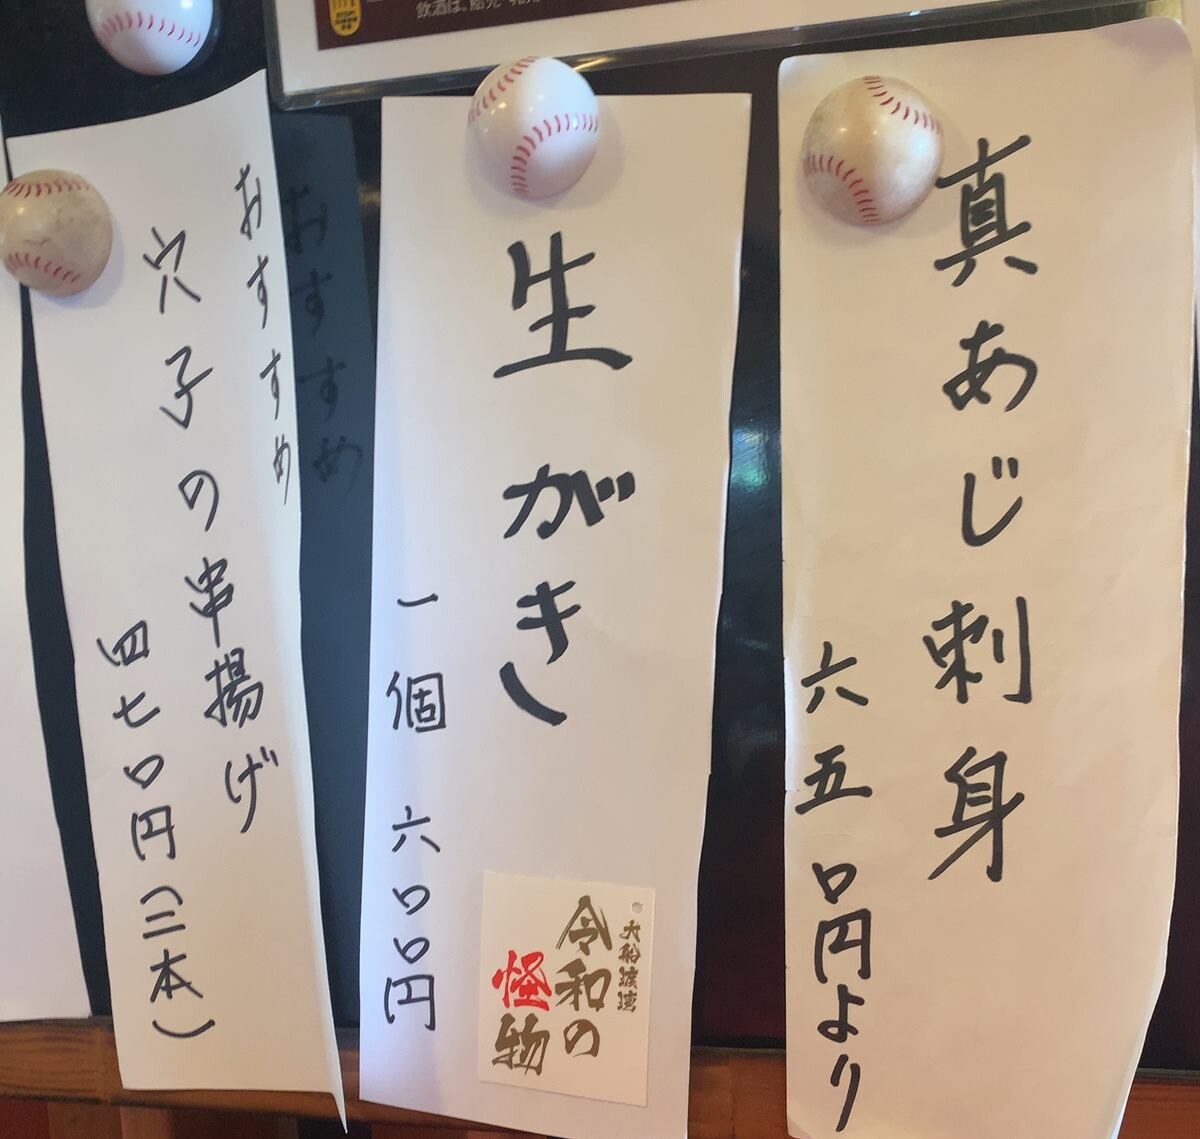 真あじ刺身
六五〇円より
生がき
一個 六〇〇円
大船渡湾
令和の
怪物
おすすめ
穴子の串揚げ
四七〇円(二本)